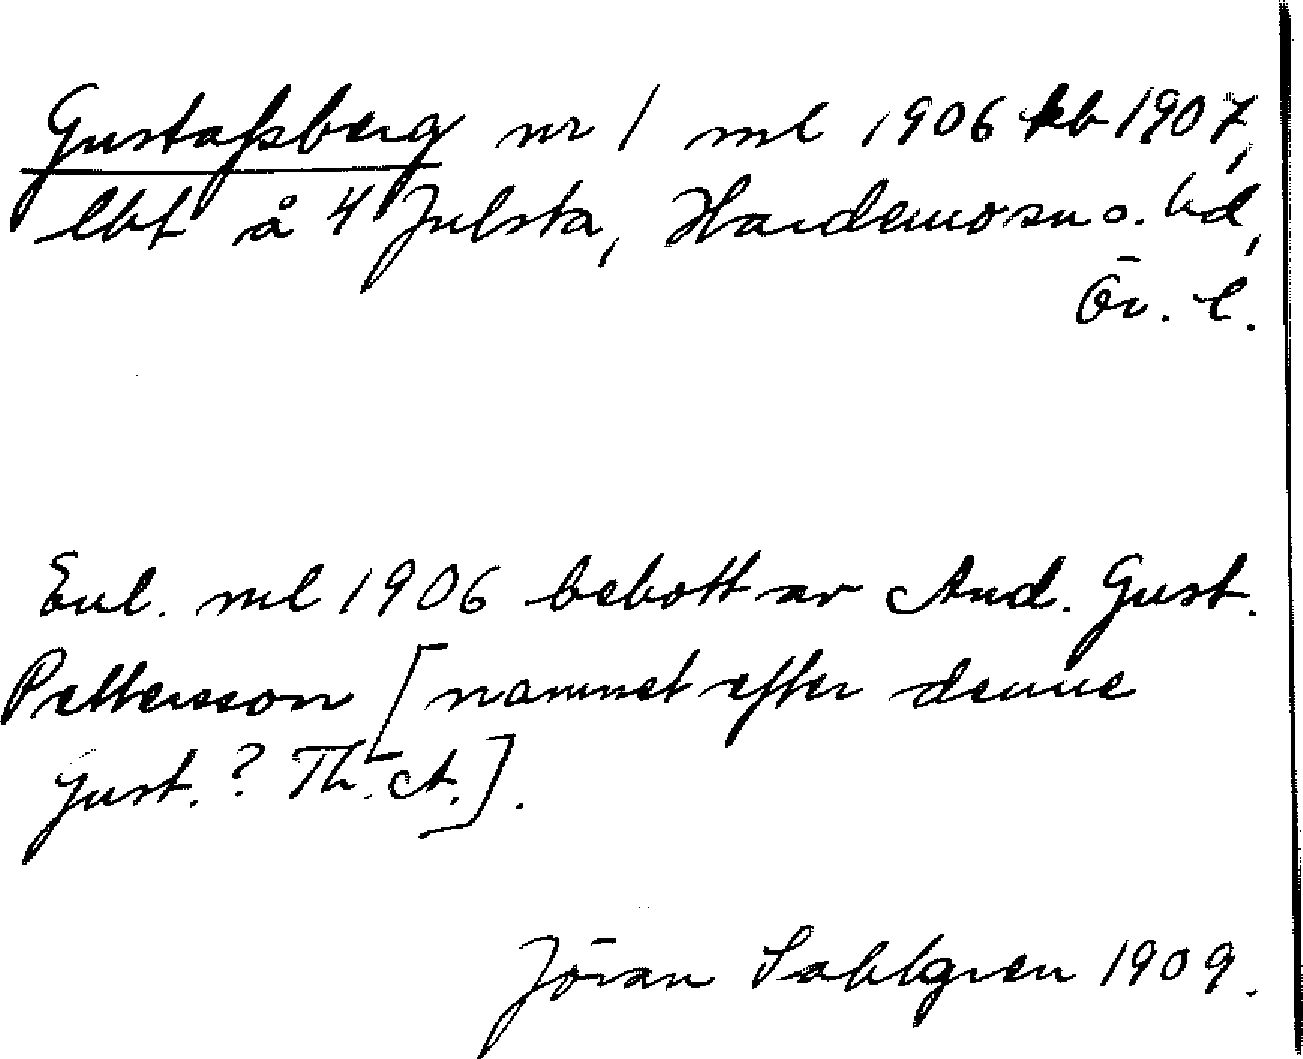 Gustafsberg nr 1 ml 1906 kb 1907,
lht å 4 Julsta, Hardemo sn o. hd,
Ör. l.
Enl. ml 1906 bebott av And. Gust.
Pettersson [namnet efter denne
Gust.? Th. A.].
Jöran Sahlgren 1909.